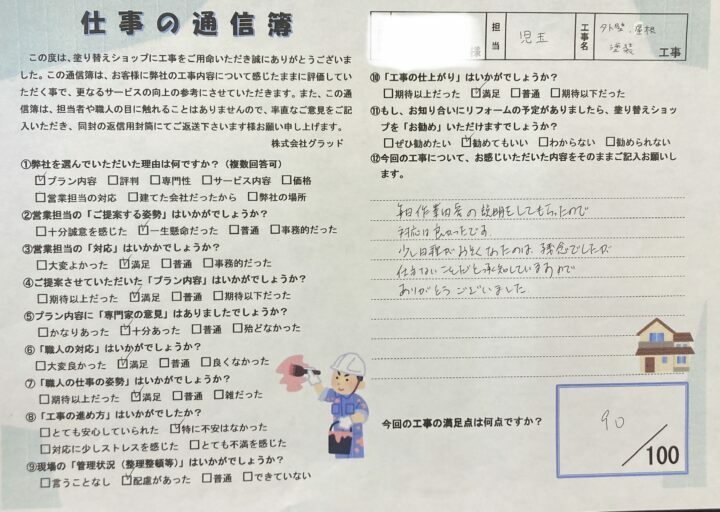 仕事の通信簿
この度は、塗り替えショップに工事をご用命いただき誠にありがとうございま
した。この通信簿は、お客様に弊社の工事内容について感じたままに評価してい
ただく事で、更なるサービスの向上の参考にさせていただきます。また、この通
信簿は、担当者や職人の目に触れることはありませんので、率直なご意見をご記
入いただき、同封の返信用封筒にてご返送下さいます様お願い申し上げます。
株式会社グラッド
①弊社を選んでいただいた理由は何ですか？（複数回答可）
☑プラン内容 □評判 □専門性 □サービス内容 □価格
□営業担当の対応 □建てた会社だったから □弊社の場所
②営業担当の「ご提案する姿勢」はいかがでしょうか？
□十分誠意を感じた ☑一生懸命だった □普通 □事務的だった
③営業担当の「対応」はいかかでしょうか？
□大変よかった ☑満足 □普通 □事務的だった
④ご提案させていただいた「プラン内容」はいかがでしょうか？
□期待以上だった ☑満足 □普通 □期待以下だった
⑤プラン内容に「専門家の意見」はありましたでしょうか？
□かなりあった ☑十分あった □普通 □殆どなかった
⑥「職人の対応」はいかがでしょうか？
□大変良かった ☑満足 □普通 □良くなかった
⑦「職人の仕事の姿勢」はいかがでしょうか？
□期待以上だった ☑満足した □普通 □雑だった
⑧「工事の進め方」はいかがでしたか？
□とても安心していられた ☑特に不安はなかった
□対応に少しストレスを感じた □とても不満を感じた
⑨現場の「管理状況（整理整頓等）」はいかがでしょうか？
□言うことなし ☑配慮があった □普通 □できていない
様 担当 児玉 工事名 外壁、屋根 塗装 工事
⑩「工事の仕上がり」はいかがでしょうか？
□期待以上だった ☑満足 □普通 □期待以下だった
⑪もし、お知り合いにリフォームの予定がありましたら、塗り替えショッ
プを「お勧め」いただけますでしょうか？
□ぜひ勧めたい ☑勧めてもいい □わからない □勧められない
⑫今回の工事について、お感じいただいた内容をそのままご記入お願いし
ます。
毎日作業内容の説明をしてもらったので
対応は良かったです。
少し日程がおそくなったのは残念でしたが
仕方ないことだと承知していますので
ありがとうございました。
今回の工事の満足点は何点ですか？
90/100